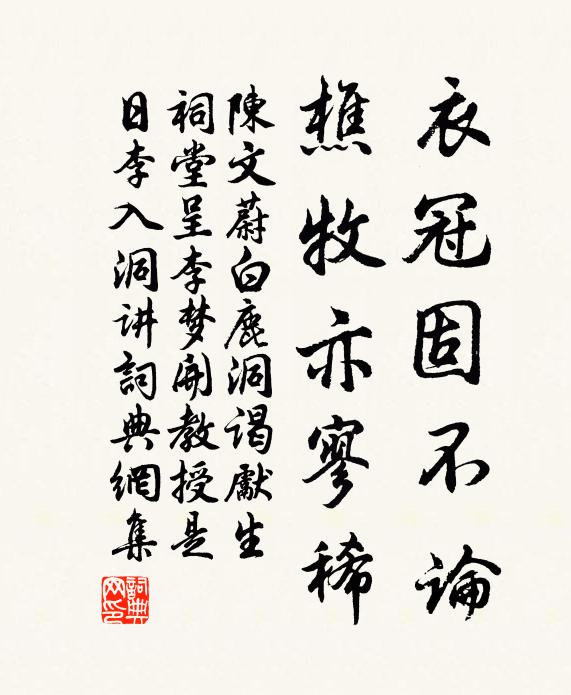 衣冠固不論
樵牧亦寥稀
陳文蔚白鹿洞谒獻生
祠堂呈李梦開教授是
日李入洞讲詞典網集
詞典
网印